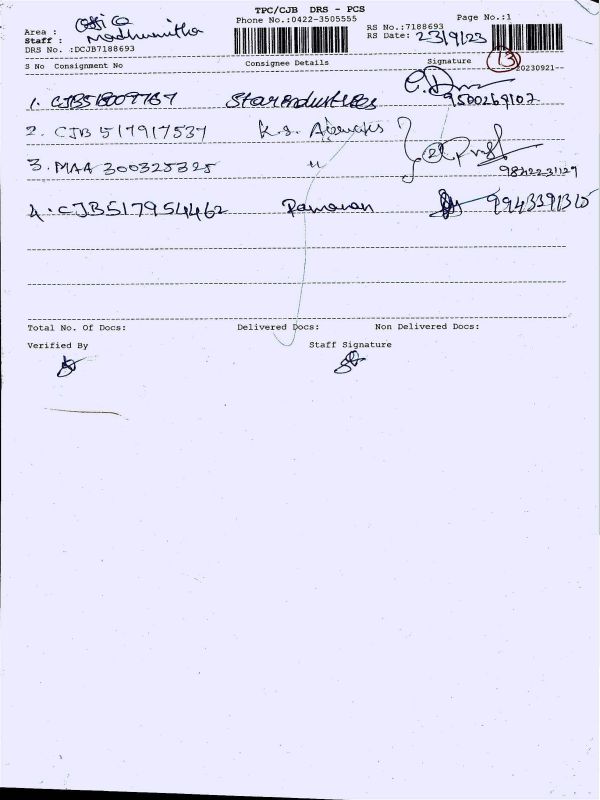 TPC/CJB DRS - PCS
Phone No.:0422-3505555
RS No.:7188693
Page No.:1
Area :
Staff : Madhumitha
RS Date: 23/9/23
DRS No. :DCJB7188693
13
S No Consignment No Consignee Details Signature 20230921
1. CJB518009767 Starindustries 9500269107
2. CJB 517917537 K.S. Agencies
3. MAA 300325325 " 9842231129
4. CJB517954462 Ramanan 9943391315
Total No. Of Docs: Delivered Docs: Non Delivered Docs:
Verified By Staff Signature